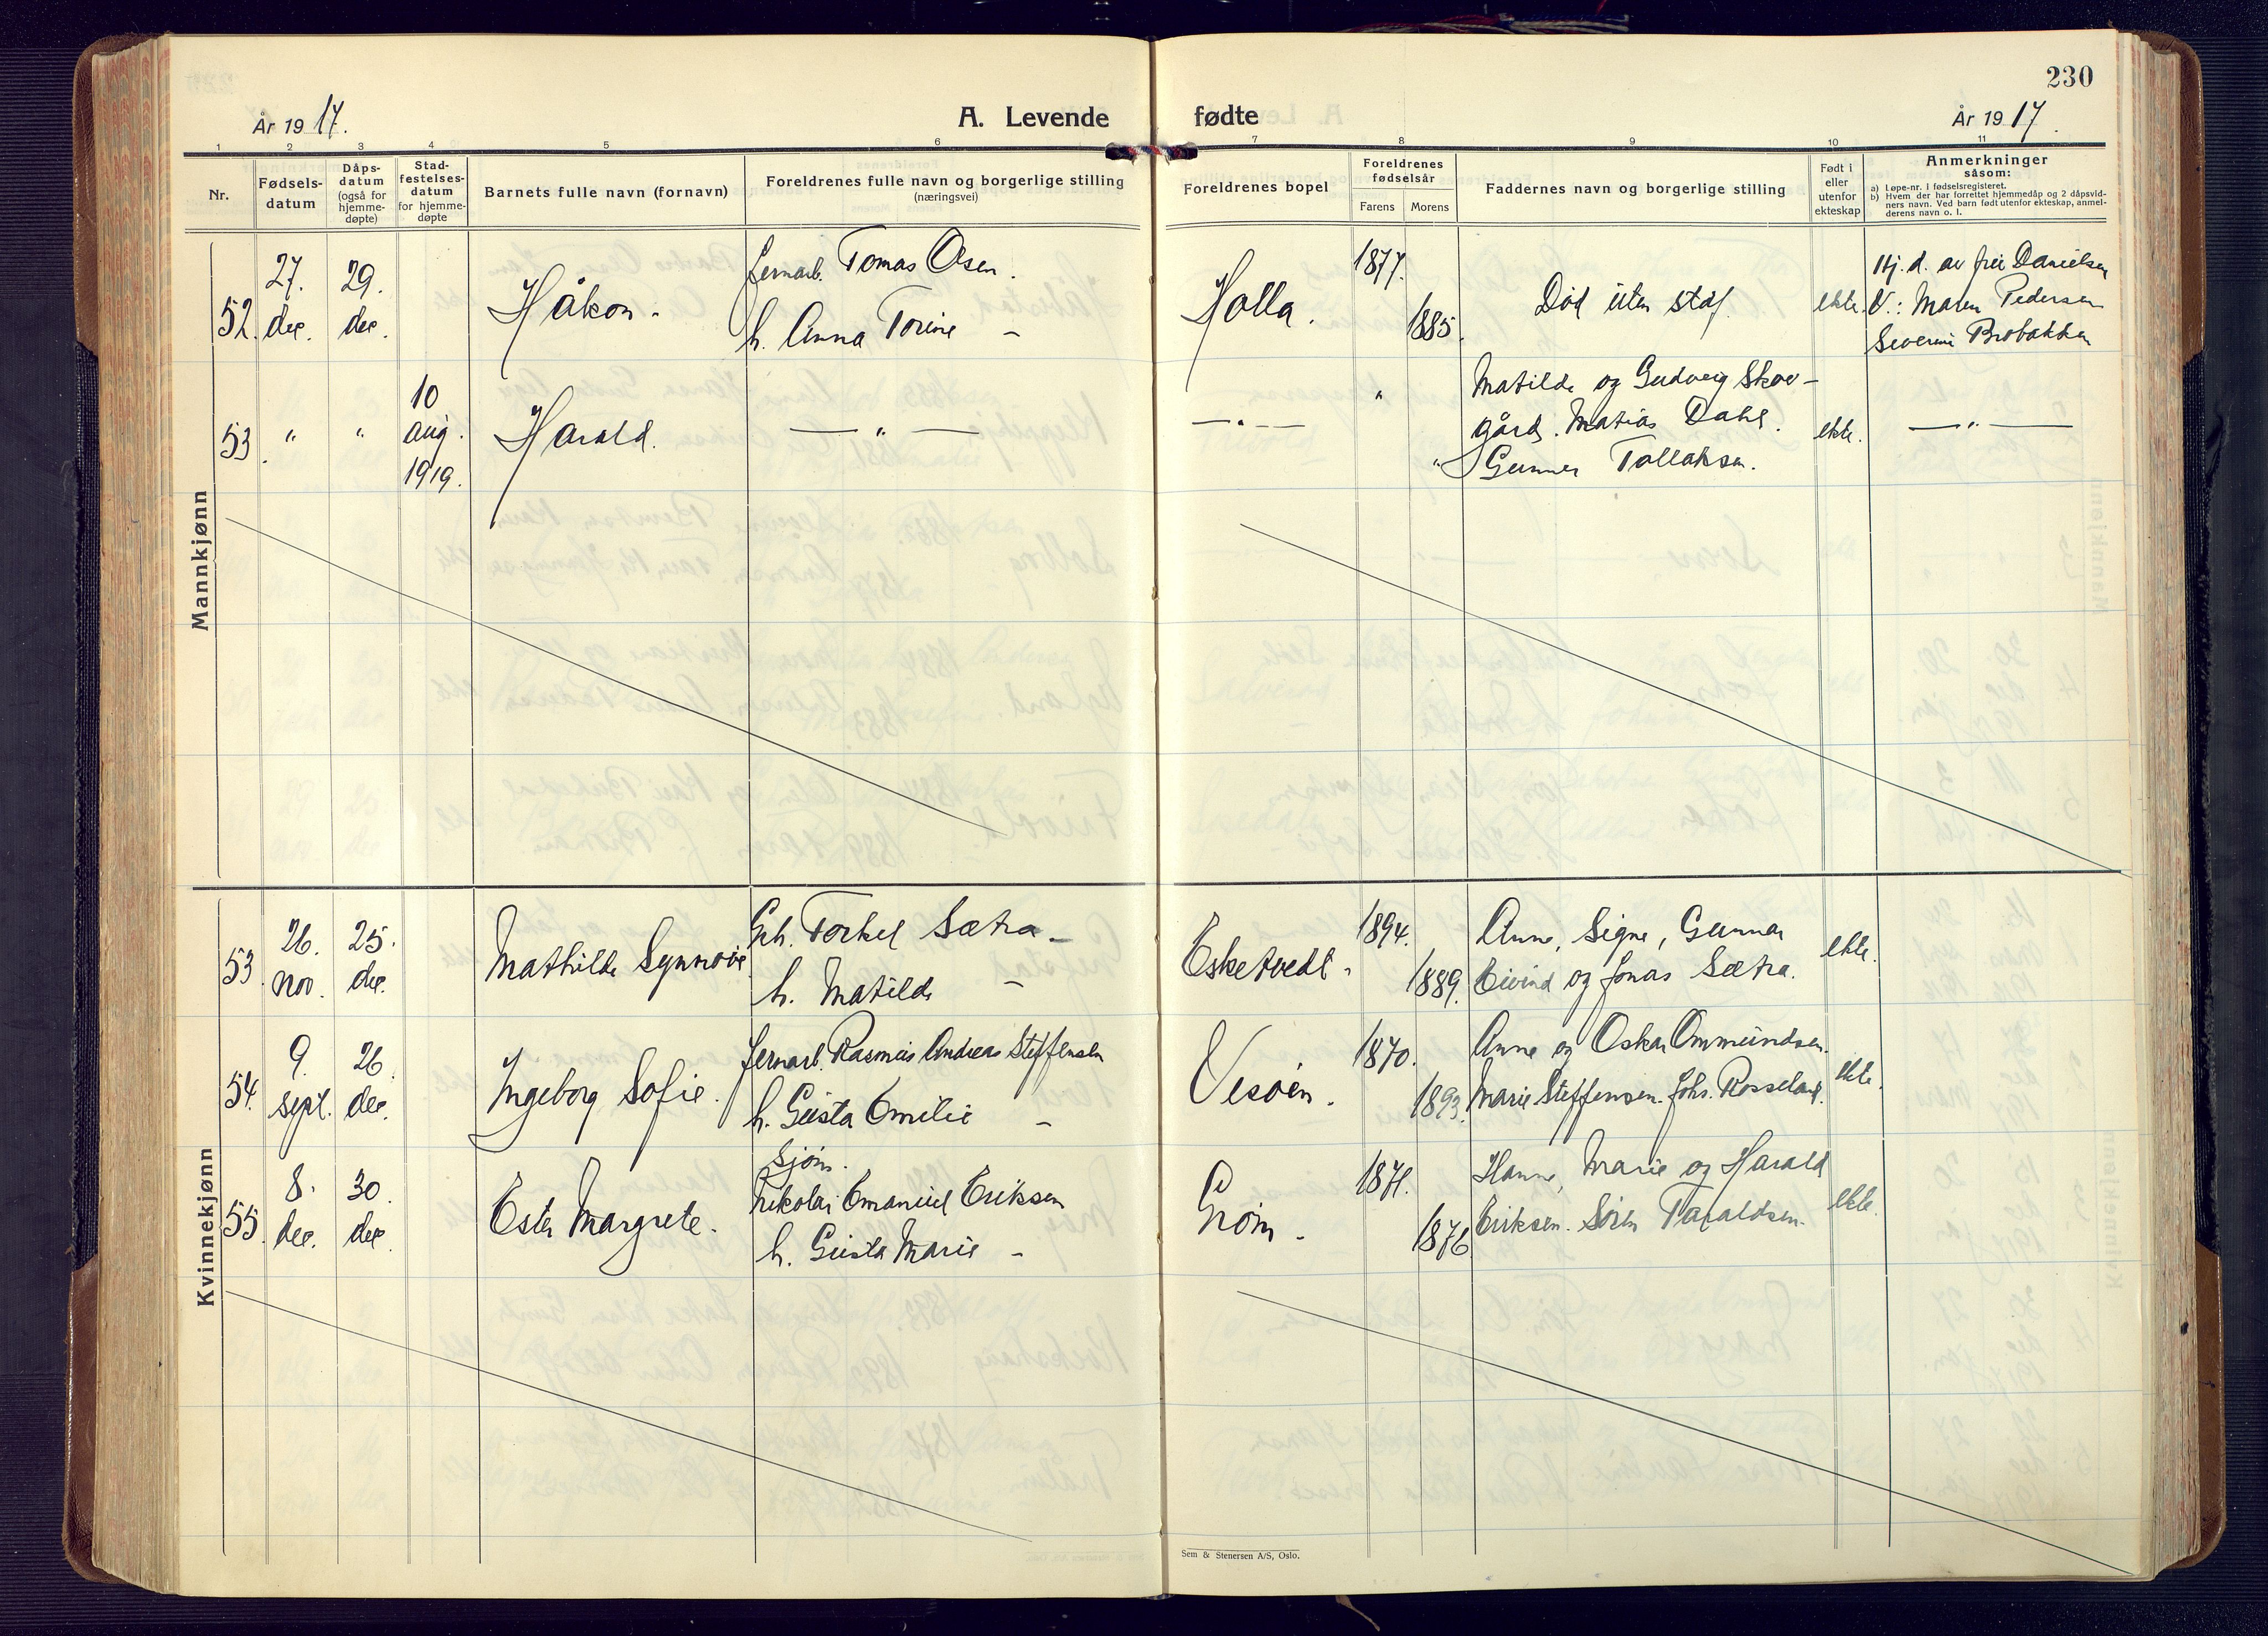 230
År 19 17.
A. Levende fødte
År 19 17.
1 2 3 4 5 6 7 8 9 10 11
Nr.
Fødsels-
datum
Dåps-
datum
(også for
hjemme-
døpte)
Stad-
festelses-
datum
for hjemme-
døpte
Barnets fulle navn (fornavn)
Foreldrenes fulle navn og borgerlige stilling
(næringsvei)
Foreldrenes bopel
Foreldrenes
fødselsår
Farens Morens
Faddernes navn og borgerlige stilling
Født i
eller
utenfor
ekteskap
Anmerkninger
såsom:
a) Løpe-nr. i fødselsregisteret.
b) Hvem der har forrettet hjemmedåp og 2 dåpsvid-
ners navn. Ved barn født utenfor ekteskap, anmel-
derens navn o. l.
Mannkjønn
52.
27.
dec.
29.
dec.
Håkon.
Jernarb. Tomas Osen.
h. Anna Torine —
Holla.
1877.
1885.
Død uten stdf.
ekte.
Hj. d. av frü Danielsen
V.: Maren Pedersen
Severine Brobakken
53.
"
"
10
aug.
1919.
Harald.
— " —
— " —
"
"
Matilde og Gudveig Skov-
gård. Matias Dahl.
Gunner Tallaksen.
ekte.
— " —
Kvinnekjønn
53.
26.
nov.
25.
dec.
Mathilde Synnøve
Gbh. Torkel Sætra —
h. Matilde —
Esketvedt.
1894.
1889.
Anne, Signe, Gunnar
Eivind og Jonas Sætra.
ekte.
54.
9.
sept.
26.
dec.
Ingeborg Sofie.
Jernarb. Rasmus Andreas Steffensen
h. Gusta Emilie —
Vesøen.
1870.
1893.
Anne og Oskar Ommundsen.
Marie Steffensen. Johs. Rosseland.
ekte.
55.
8.
dec.
30.
dec.
Ester Margrete.
Sjøm.
Nikolai Emanuel Eriksen
h. Gusta Marie —
Grøm.
1871.
1876
Hanne, Marie og Harald
Eriksen. Søren Taraldsen.
ekte.
Sem & Stenersen A/S, Oslo.